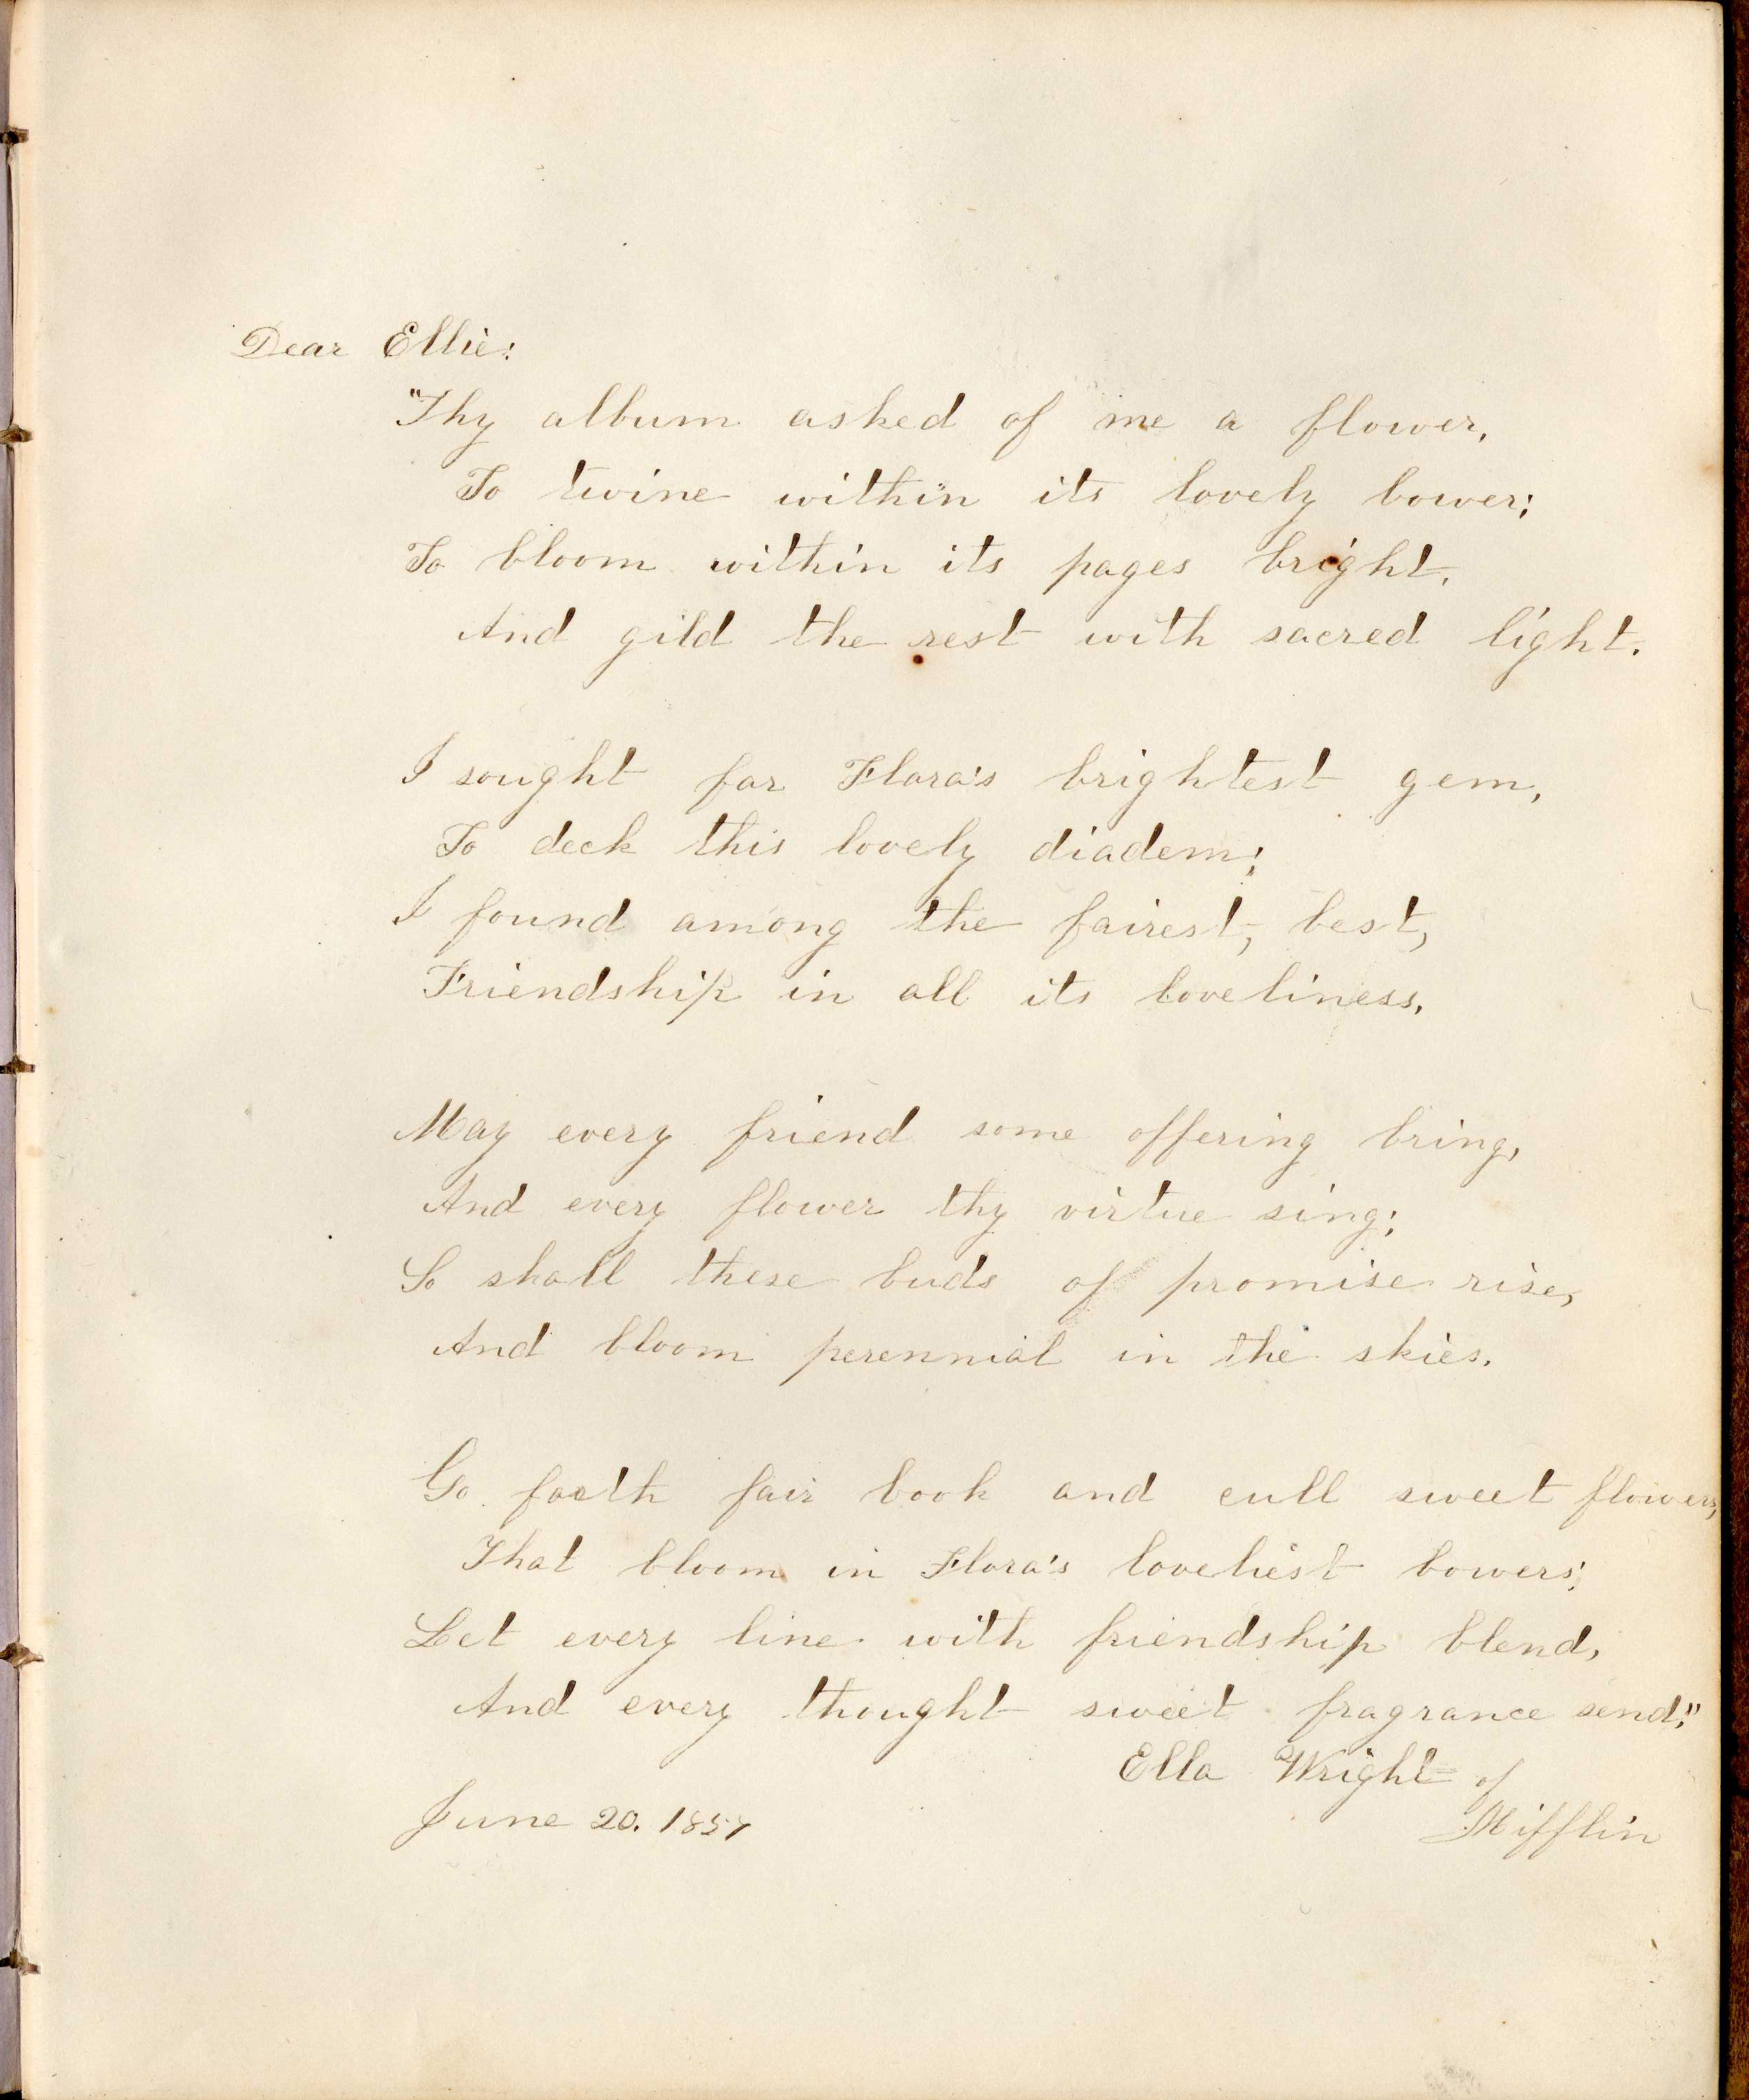 Dear Ellie:
"Thy album asked of me a flower,
To twine within its lovely bower;
To bloom within its pages bright,
And gild the rest with sacred light.
I sought for Flora's brightest gem,
To deck this lovely diadem;
I found among the fairest, best,
Friendship in all its loveliness.
May every friend some offering bring,
And every flower thy virtue sing;
So shall these buds of promise rise,
And bloom perennial in the skies.
Go forth fair book and cull sweet flowers,
That bloom in Flora's loveliest bowers;
Let every line with friendship blend,
And every thought sweet fragrance send."
Ella Wright of
Mifflin
June 20. 1857